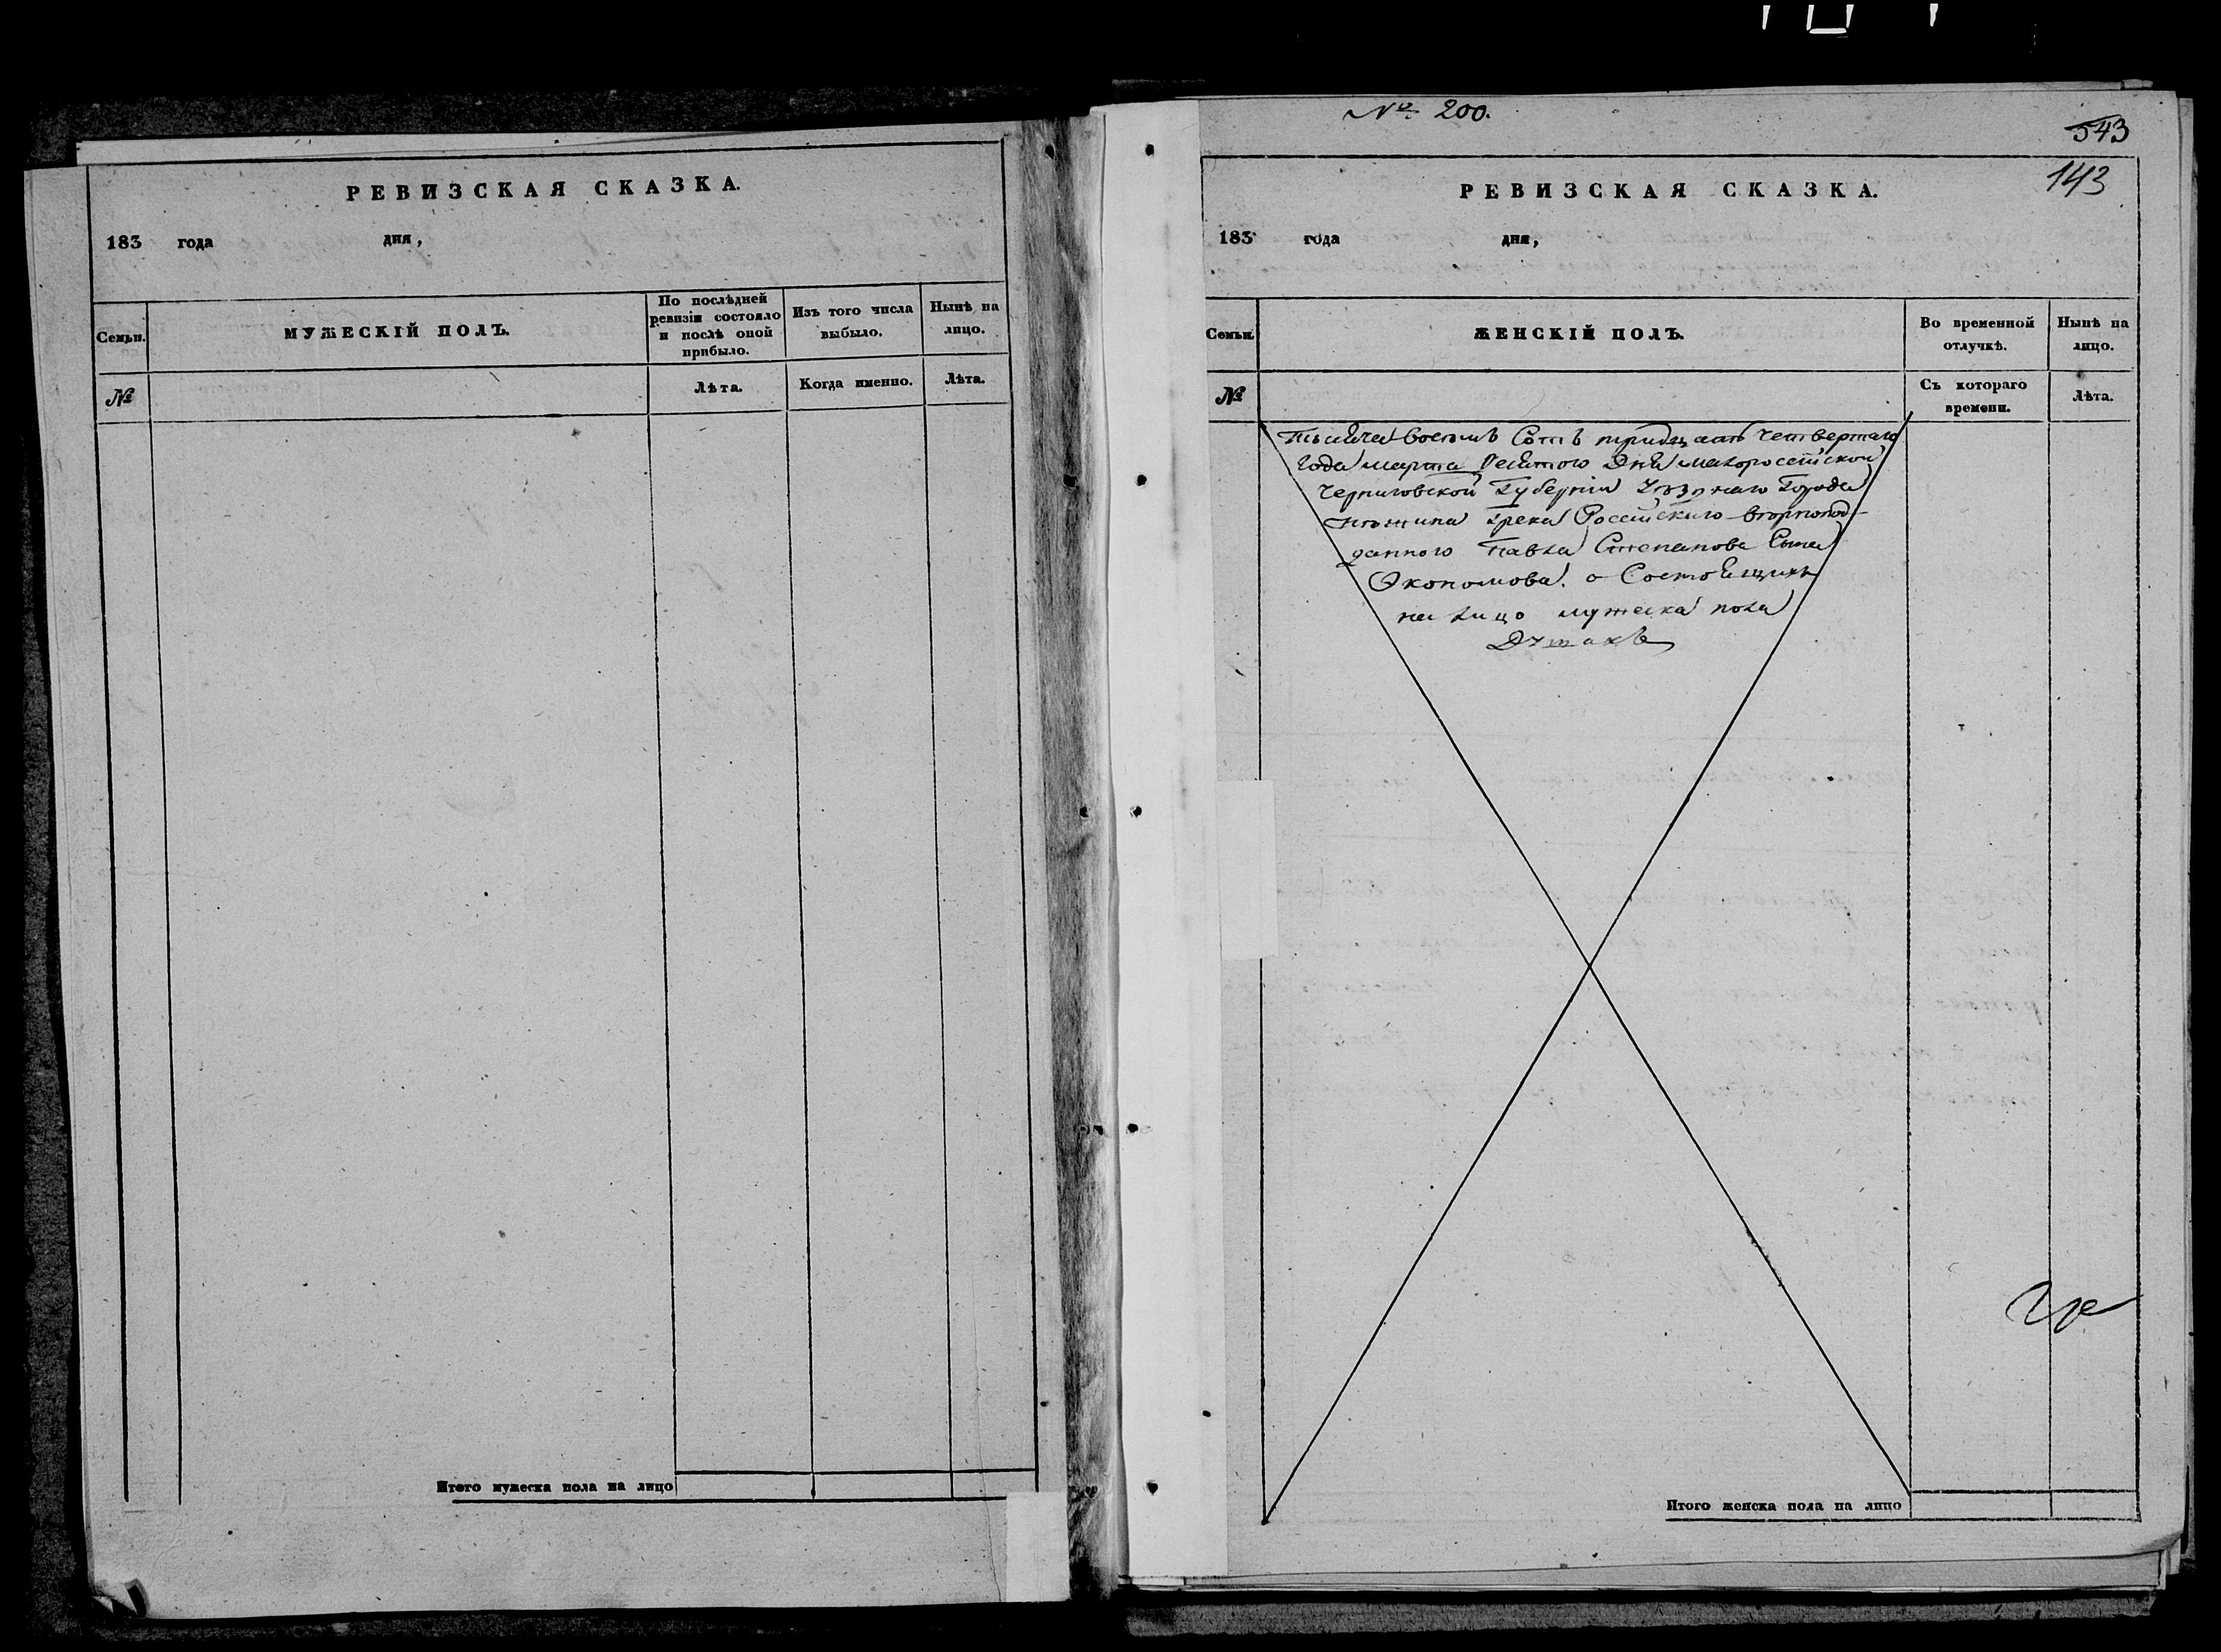 РЕВИЗСКАЯ СКАЗКА.
183 года дня,
Семьи.
МУЖЕСКІЙ ПОЛЪ.
По послѣдней
ревизіи состояло
и послѣ оной
прибыло.
Изъ того числа
выбыло.
Нынѣ на
лицо.
№
Лѣта.
Когда именно.
Лѣта.
Итого мужеска пола на лицо
№ 200.
543
143
РЕВИЗСКАЯ СКАЗКА.
183 года дня,
Семьи.
ЖЕНСКІЙ ПОЛЪ.
Во временной
отлучкѣ.
Нынѣ на
лицо.
№
Съ котораго
времени.
Лѣта.
Тысяча восемь Сотъ тридцать четвертаго
года марта десятого Дня малоросейской
Черниговской Губерніи уѣзнаго Города
Нѣжина Грека Росейскаго вѣрнопод-
данного Павла Степанова Сына
Экономова. о Состоящихъ
на лицо мужеска пола
Душахъ
Итого женска пола на лицо